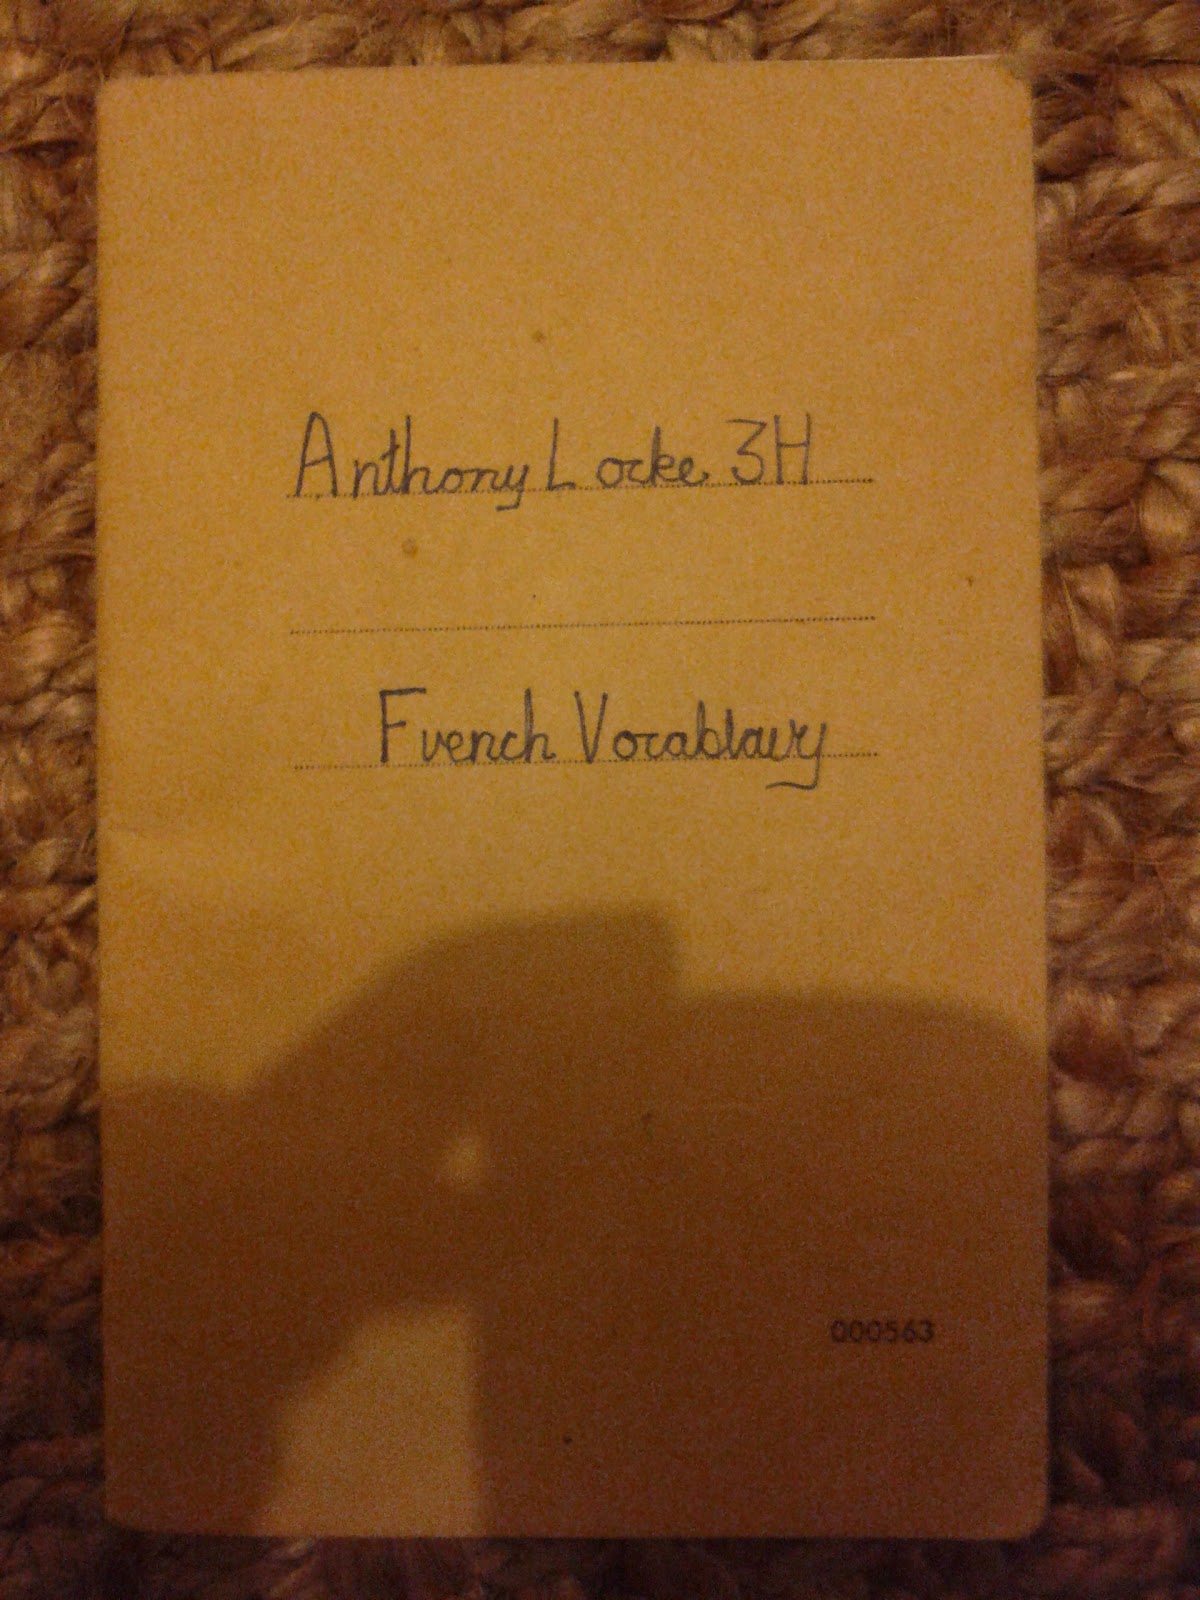 Anthony Locke 3H
French Vocablary
000563